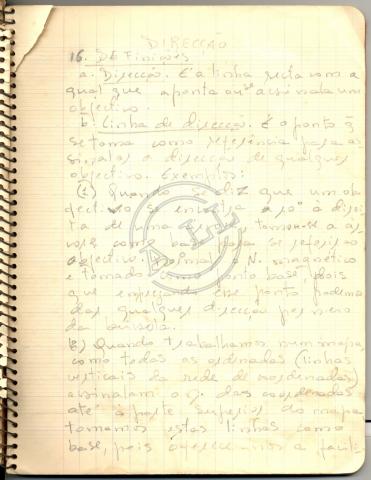 DIRECÇÃO
16. DEFinições
a. Direcção. E' a linha recta com a
qual que aponta ou assinala um
objectivo.
b. Linha de direcção. É o ponto q
se toma como referência para as
sinalar a direcção de qualquer
objectivo. Exemplos:
(1) Quando se diz que um ob
jectivo se encontra a 50° à direi
ta de uma tomou-se a ár
vore como base para se referir ao
objectivo. Normal o N. magnético
e tomado como ponto base, pois
que empregando esse ponto podemos
dar qualquer direcção por meio
da bússola.
2) Quando trabalhamos num mapa,
como todas as ordenadas (linhas
verticais da rede de coordenadas)
assinalam o das coordenadas
até à parte superior do mapa
tomamos estas linhas como
base, pois a facili